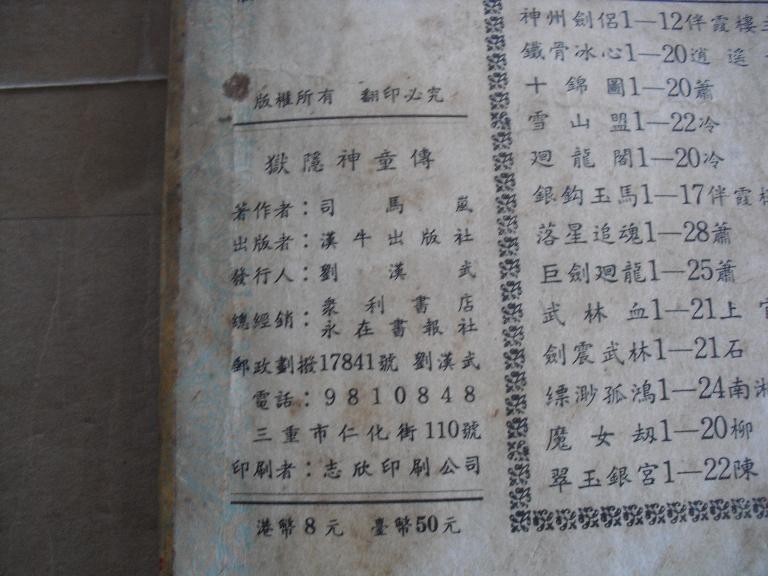 版權所有 翻印必究
獄隱神童傳
著作者：司馬嵐
出版者：漢牛出版社
發行人：劉漢武
總經銷：衆利書店
永在書報社
郵政劃撥17841號 劉漢武
電話：9810848
三重市仁化街110號
印刷者：志欣印刷公司
港幣8元 臺幣50元
神州劍侶1—12伴霞樓主
鐵骨冰心1—20逍遙
十錦圖1—20蕭
雪山盟1—22冷
廻龍閣1—20冷
銀鈎玉馬1—17伴霞樓
落星追魂1—28蕭
巨劍廻龍1—25蕭
武林血1—21上官
劍震武林1—21石
縹渺孤鴻1—24南湘
魔女刼1—20柳
翠玉銀宮1—22陳